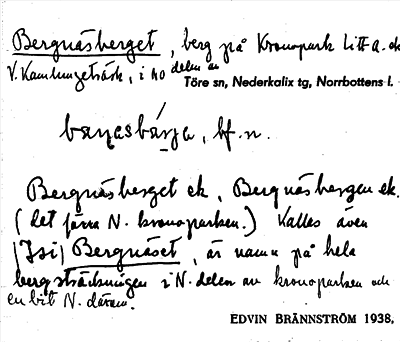 Bergnäsberget, berg på Kronopark Litt a. ok
V. Kamlungeträsk, i no delen av
Töre sn, Nederkalix tg, Norrbottens l.
bæŋasbárja, bf. n.
Bergnäsberget ek, Bergnäsbergen ek.
(det förra N. kronoparken.) Kallas även
(Isi) Bergnäset, är namn på hela
bergsträckningen i N. delen av kronoparken och
en bit N. därom.
EDVIN BRÄNNSTRÖM 1938.